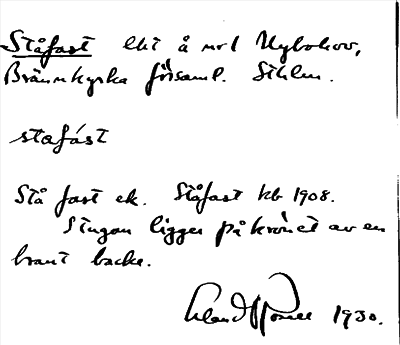 Ståfast lht å nr 1 Nybohov,
Brännkyrka församl. Sthlm.
stafást
Stå fast ek. Ståfast kb 1908.
Stugan ligger på krönet av en
brant backe.
1930.